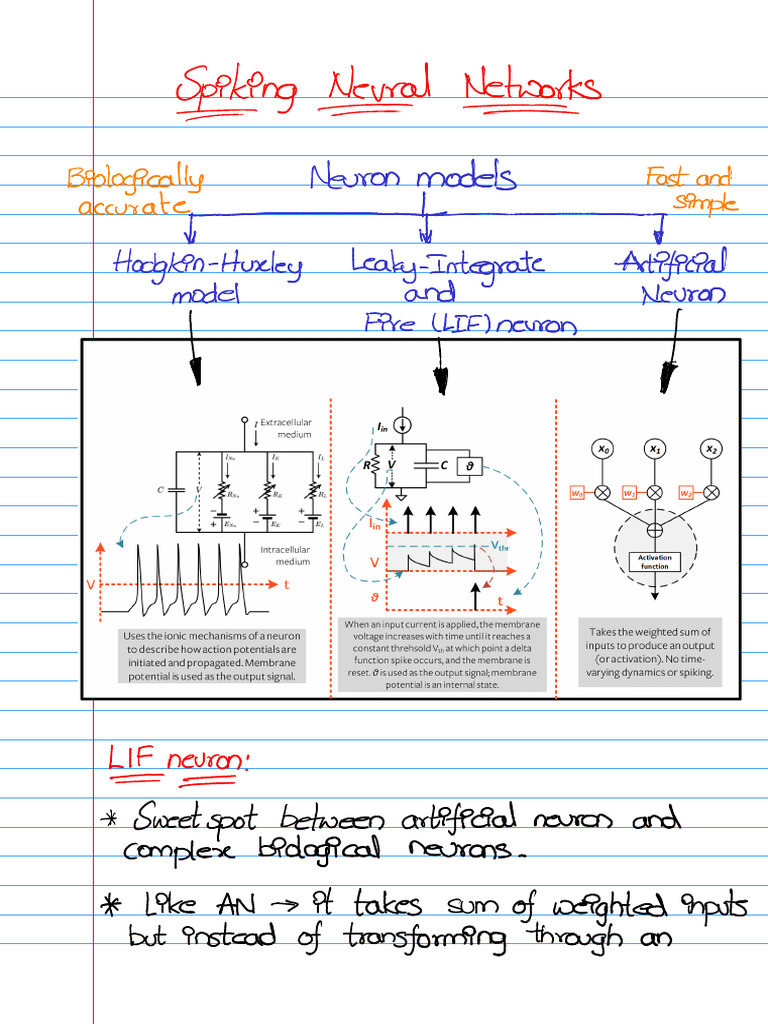 Spiking Neural Networks
Biologically
accurate
Neuron models
Fast and
simple
Hodgkin-Huxley
model
Leaky-Integrate
and
Fire (LIF) neuron
Artificial
Neuron
I
Extracellular
medium
C
V
I_Na
I_K
I_L
R_Na
R_K
R_L
E_Na
E_K
E_L
− + + − + −
Intracellular
medium
V
t
Uses the ionic mechanisms of a neuron
to describe how action potentials are
initiated and propagated. Membrane
potential is used as the output signal.
I_in
R
V
C
ϑ
I_in
V_thr
V
ϑ
t
When an input current is applied, the membrane
voltage increases with time until it reaches a
constant threhsold V_th at which point a delta
function spike occurs, and the membrane is
reset. ϑ is used as the output signal; membrane
potential is an internal state.
x₀
x₁
x₂
w₀
w₁
w₂
Activation
function
Takes the weighted sum of
inputs to produce an output
(or activation). No time-
varying dynamics or spiking.
LIF neuron:
* Sweet spot between artificial neuron and
complex biological neurons.
* Like AN → it takes sum of weighted inputs
but instead of transforming through an